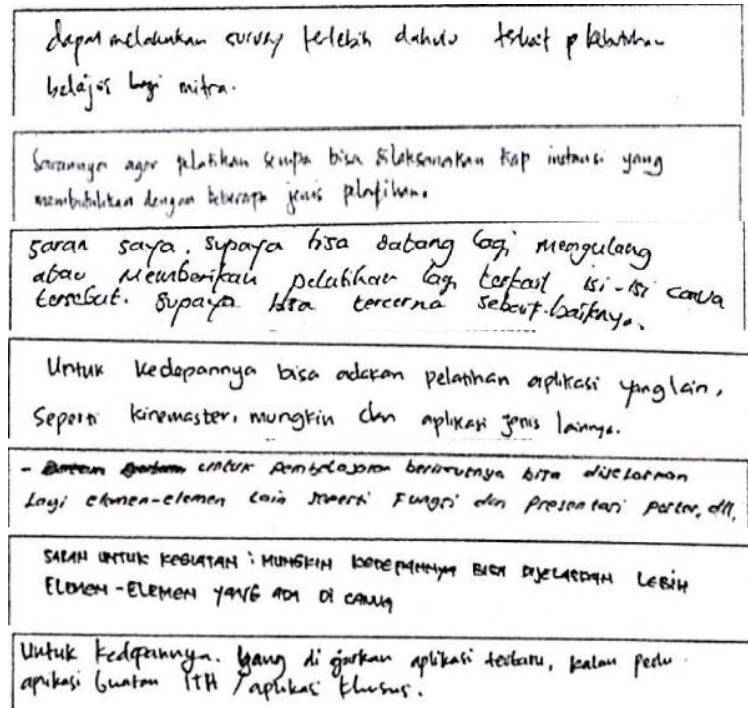 dapat melakukan survey terlebih dahulu terkait kebutuhan
belajar bagi mitra.
Sarannya agar pelatihan serupa bisa dilaksanakan tiap instansi yang
membutuhkan dengan beberapa jenis pelatihan.
saran saya. supaya bisa datang lagi mengulang
atau Memberikan pelatihan lagi terkait isi-isi canva
tersebut. supaya bisa tercerna sebaik-baiknya.
Untuk kedepannya bisa adakan pelatihan aplikasi yang lain,
Seperti kinemaster, mungkin dan aplikasi jenis lainnya.
- untuk pembelajaran berikutnya bisa dijelaskan
Lagi elemen-elemen lain seperti Fungsi dan Presentasi poster, dll,
SARAN UNTUK KEGIATAN : MUNGKIN KEDEPANNYA BISA DIJELASKAN LEBIH
ELEMEN-ELEMEN YANG ADA DI CANVA
Untuk kedepannya. yang di ajarkan aplikasi terbaru, kalau perlu
aplikasi buatan ITH / aplikasi khusus.